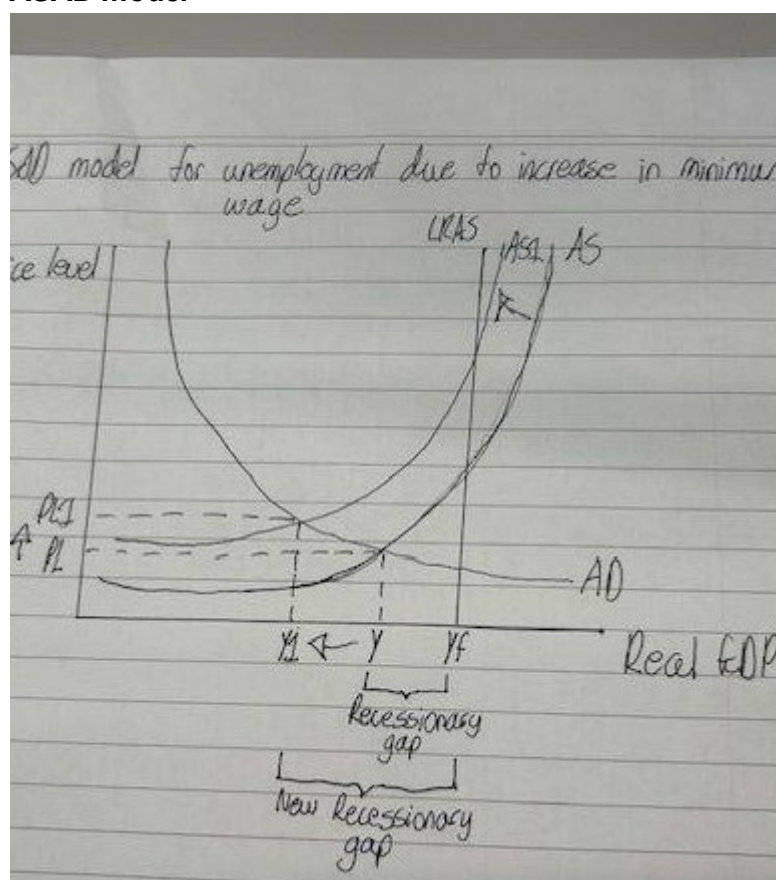 ASAD Model
SAD model for unemployment due to increase in minimu
wage
LRAS AS1 AS
ice level
PL1
PL
AD
Y1 Y Yf
Real GDP
Recessionary
gap
New Recessionary
gap